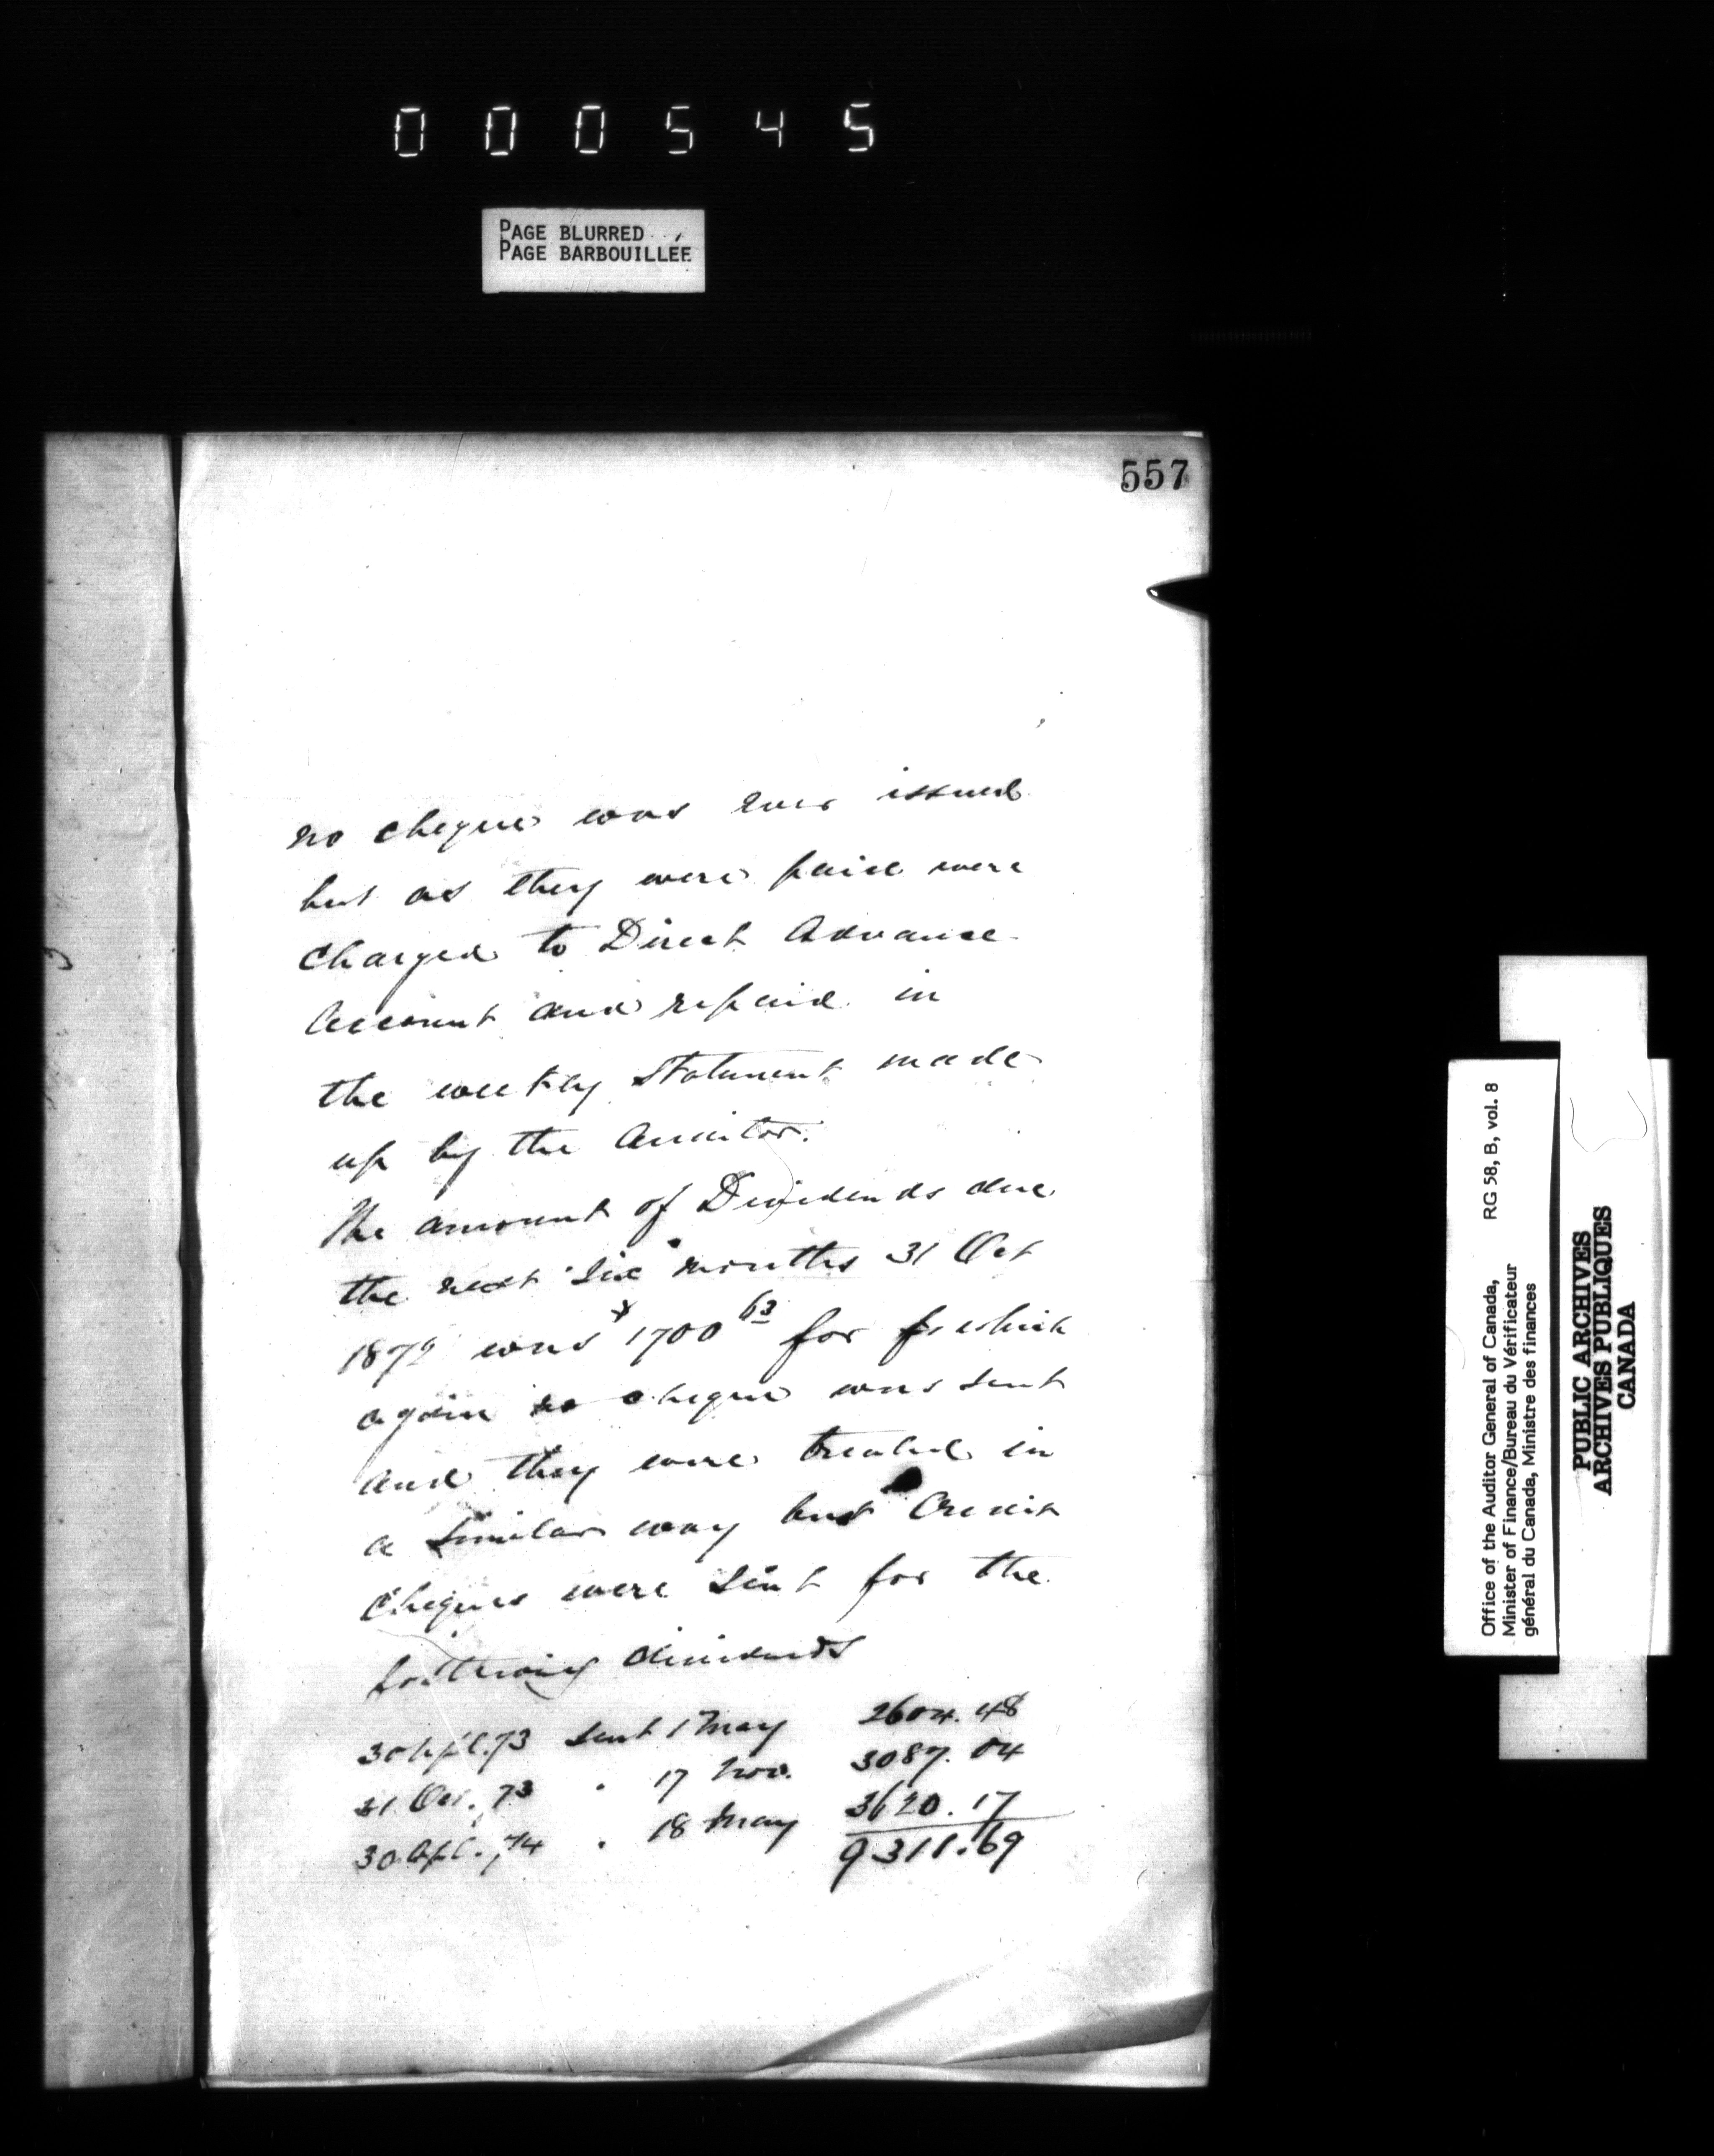 000545
PAGE BLURRED
PAGE BARBOUILLÉE
557
no cheque was ever issued
but as they were paid were
charged to Direct Advance
Account and repaid in
the weekly Statement made
up by the Auditor.
The amount of Dividends due
the next six months 31 Oct
1872 was $1700 63 for which
again no cheque was sent
and they were treated in
a similar way but Credit
Cheques were sent for the
following dividends
30 Apl. 73 sent 1 May 2604.48
31 Oct. 73 " 17 Nov. 3087.04
30 Apl. 74 " 18 May 3620.17
9311.69
Office of the Auditor General of Canada, RG 58, B, vol. 8
Minister of Finance/Bureau du Vérificateur
général du Canada, Ministre des finances
PUBLIC ARCHIVES
ARCHIVES PUBLIQUES
CANADA